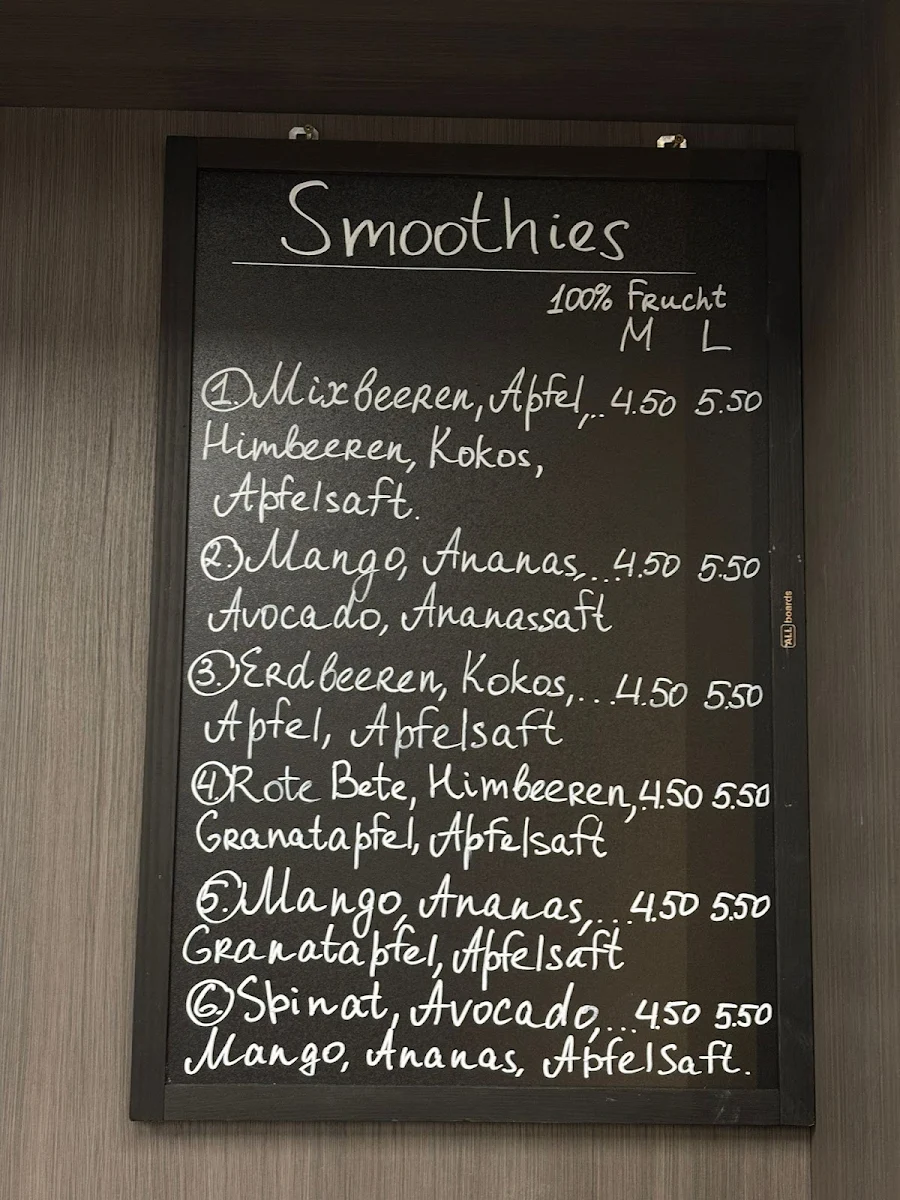 Smoothies
100% Frucht
M L
1. Mixbeeren, Apfel,.. 4.50 5.50
Himbeeren, Kokos,
Apfelsaft.
2. Mango, Ananas,... 4.50 5.50
Avocado, Ananassaft
3. Erdbeeren, Kokos,... 4.50 5.50
Apfel, Apfelsaft
4. Rote Bete, Himbeeren, 4.50 5.50
Granatapfel, Apfelsaft
5. Mango, Ananas,... 4.50 5.50
Granatapfel, Apfelsaft
6. Spinat, Avocado,... 4.50 5.50
Mango, Ananas, Apfelsaft.
ALLboards